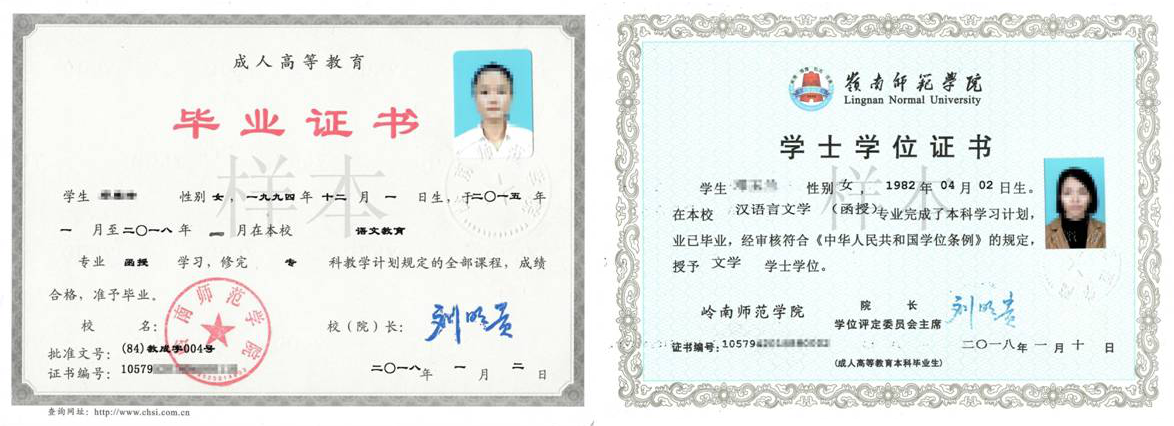 成人高等教育
毕业证书
样本
学生 性别 女，一九九四年 十二 月 一 日生，于二〇一五 年
一 月至二〇一八年 一月在本校 语文教育
专业 函授 学习，修完 专 科教学计划规定的全部课程，成绩
合格，准予毕业。
校 名： 校（院）长：
刘明贵
岭南师范学院
批准文号：(84)教成字004号
证书编号：10579
二〇一八年 一 月 二 日
查询网址：http://www.chsi.com.cn
嶺南师范学院
Lingnan Normal University
学士学位证书
样本
学生 性别 女，1982 年 04 月 02 日生。
在本校 汉语言文学 （函授）专业完成了本科学习计划，
业已毕业，经审核符合《中华人民共和国学位条例》的规定，
授予 文学 学士学位。
岭南师范学院
院 长
学位评定委员会主席
刘明贵
证书编号：10579
二〇一八年 一 月 十 日
(成人高等教育本科毕业生)